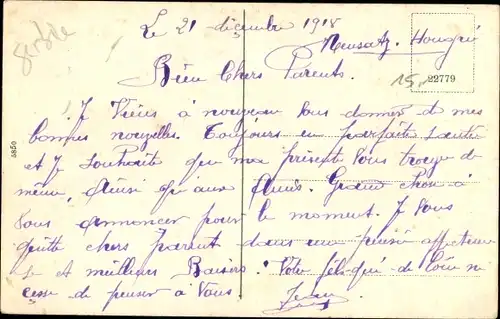 Serbie
Le 21 décembre 1918
Neusatz. Hongrie
Bien Chers Parents.
15.-
22779
5850
Je Viens à nouveau vous donner de mes
bonnes nouvelles. Toujours en parfaite santé
et Je souhaite que ma présente Vous trouve de
même, Ainsi qu'aux Amis. Grand chose à
Vous annoncer pour le moment. Je Vous
quitte chers Parents dans une pensée affectueu
se et meilleurs Baisers. Votre fils qui de loin ne
cesse de penser à Vous